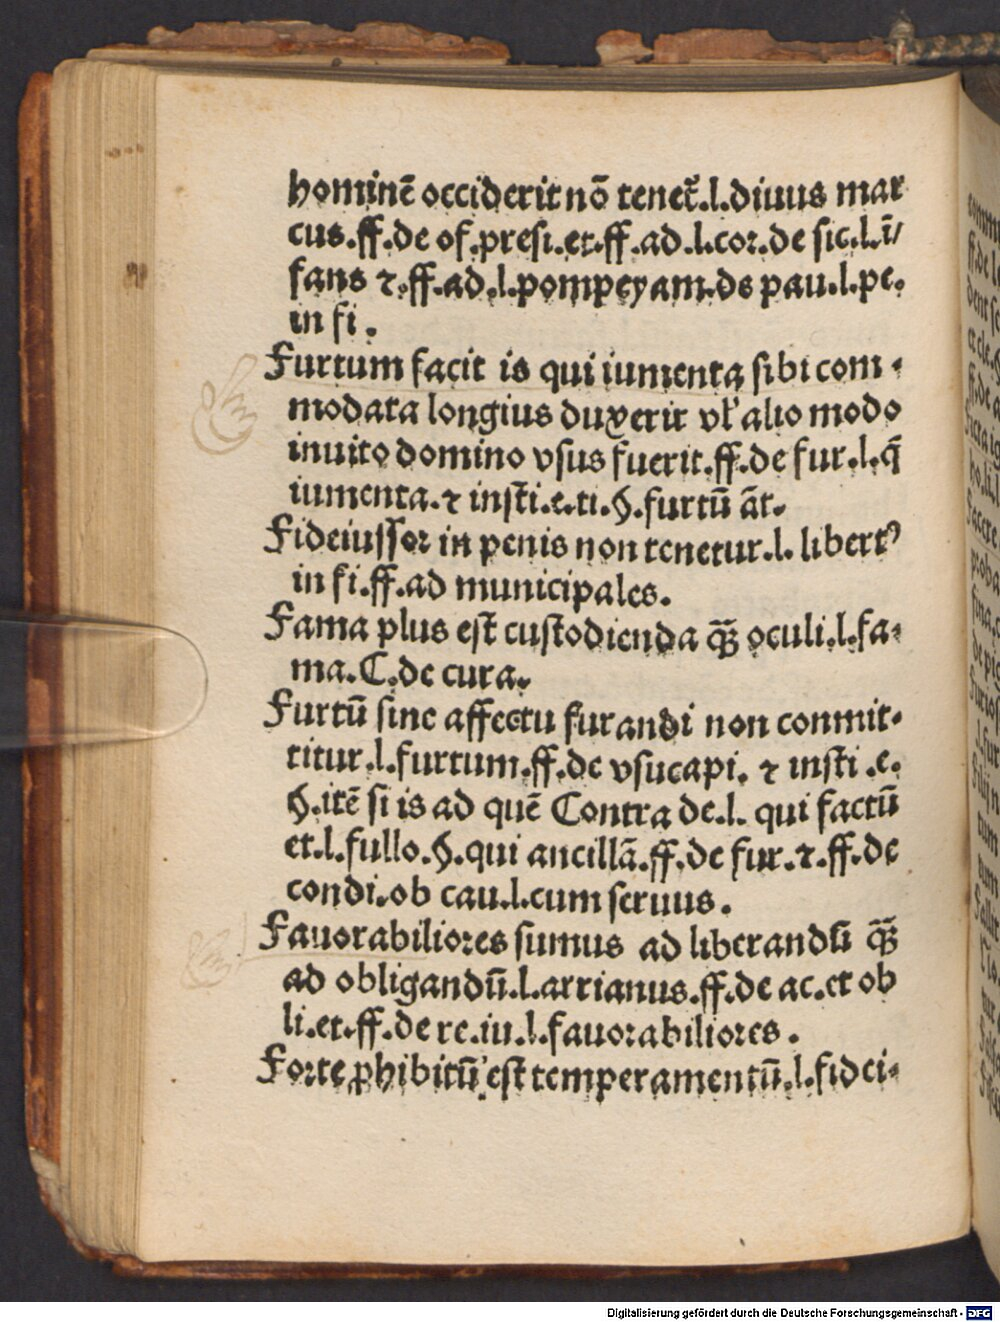 hominē occiderit nō tenet᷑.l.diuus mar
cus.ff.de of.presi.et.ff.ad.l.cor.de sic.l.ī/
fans ⁊.ff.ad.l.pompeyam.de pau.l.pe.
in fi.
Furtum facit is qui iumenta sibi com-
modata longius duxerit vl' alio modo
inuito domino vsus fuerit.ff.de fur.l.q̄
iumenta.⁊ insti.e.ti.§.furtū āt.
Fideiussor in penis non tenetur.l. libertꝰ
in fi.ff.ad municipales.
Fama plus est custodienda qȝ̄ oculi.l.fa-
ma.C.de cura.
Furtū sine affectu furandi non conmit-
titur.l.furtum.ff.de vsucapi. ⁊ insti .e.
§.itē si is ad quē Contra de.l. qui factū
et.l.fullo.§.qui ancillā.ff.de fur.⁊.ff.de
condi.ob cau.l.cum seruus.
Fauorabiliores sumus ad liberandū qȝ̄
ad obligandū.l.arrianus.ff.de ac.et ob
li.et.ff.de re.iu.l.fauorabiliores.
Forte ꝓhibitū est temperamentū.l.fidei-
Digitalisierung gefördert durch die Deutsche Forschungsgemeinschaft - DFG